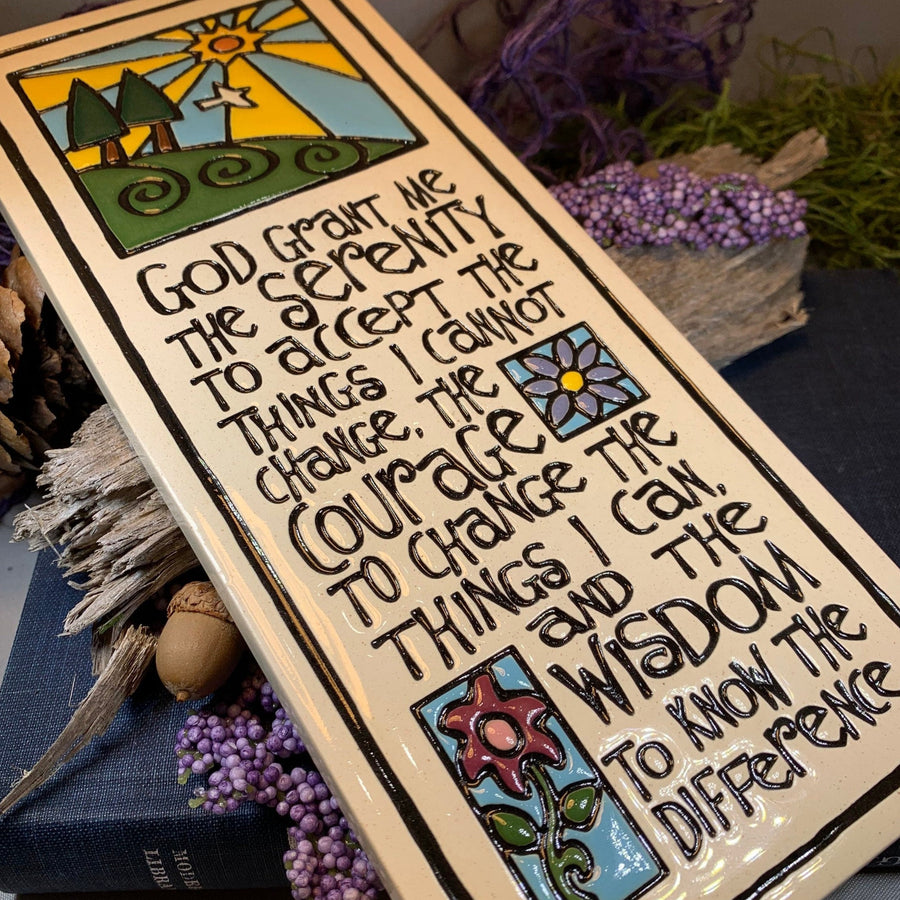 GOD Grant ME
THE SERENITY
TO accePT THE
THINGS I cannot
change, THE
courage
TO change THE
THINGS I can,
and THE
WISDOM
TO KNOW THE
DIFFERENCE